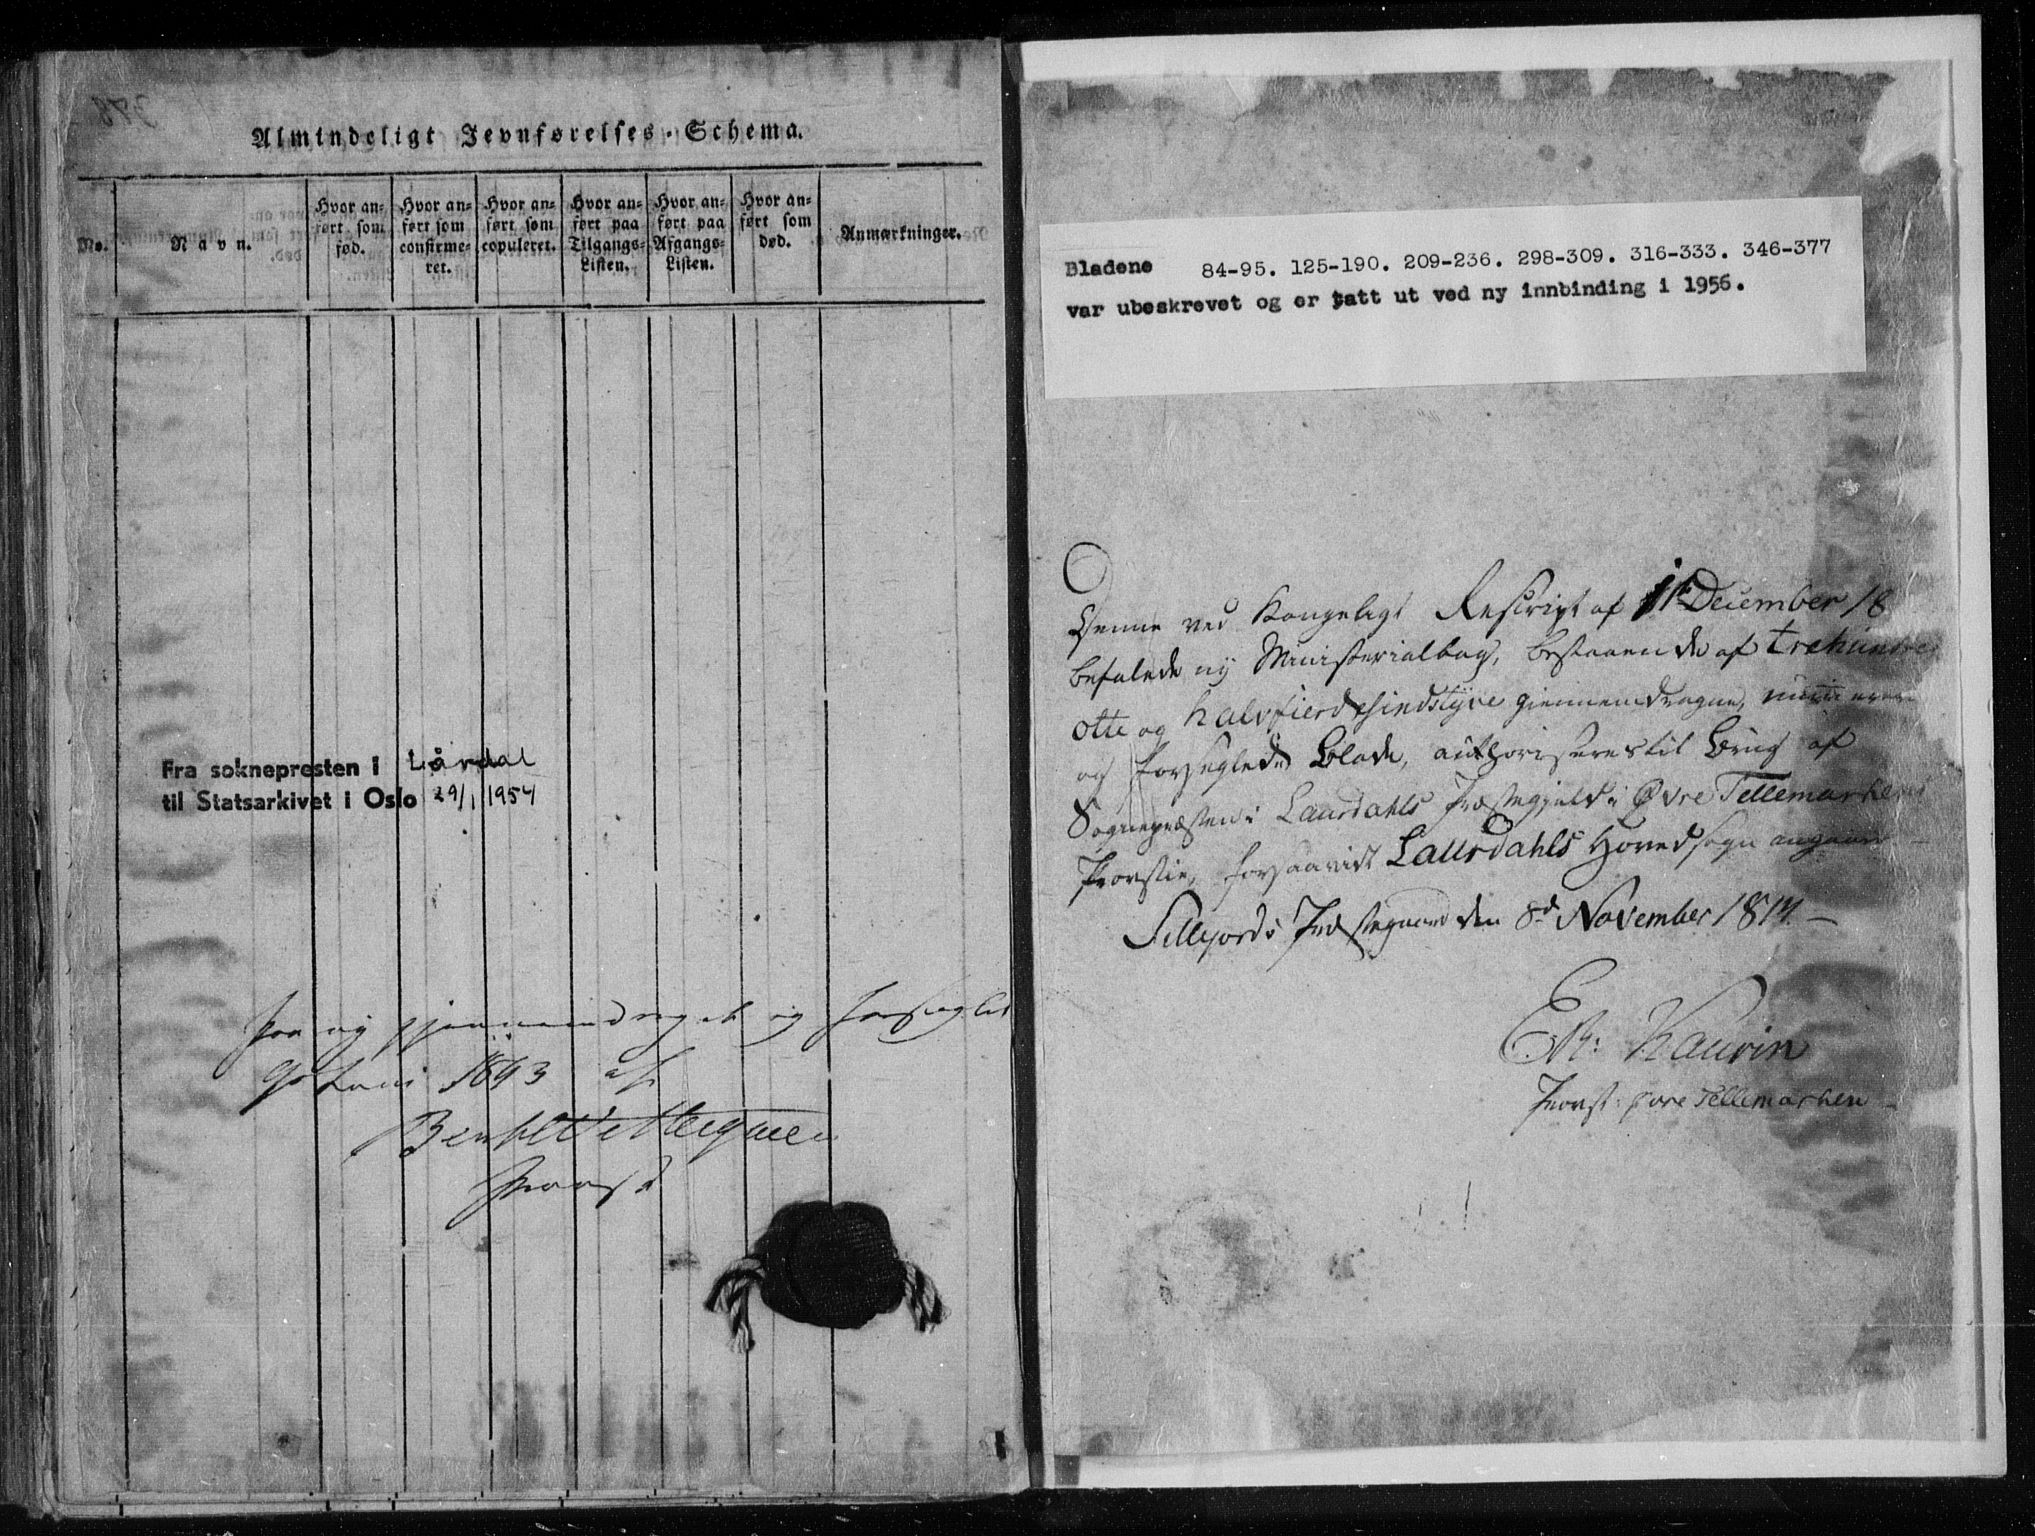 378
Almindeligt Jevnførelses-Schema.
No.
Navn.
Hvor an-
ført som
fød.
Hvor an-
ført som
confirme-
ret.
Hvor an-
ført som
copuleret.
Hvor an-
ført paa
Tilgangs-
Listen.
Hvor an-
ført paa
Afgangs-
Listen.
Hvor an-
ført som
død.
Anmærkninger.
Fra soknepresten i Lårdal
til Statsarkivet i Oslo 29/1 1954
Paa ny gjennemdraget og forseglet
1893 af
Provst
Bladene 84-95. 125-190. 209-236. 298-309. 316-333. 346-377
var ubeskrevet og er tatt ut ved ny innbinding i 1956.
Denne ved Kongeligt Rescript af 1ste December 18
befalede ny Ministerialbog, bestaaende af trehundrede
otte og halvfierdesindstyve giennemdragne, numererede
og forseglede Blade, authoriseres til Brug af
Sognepræsten i Laurdahls Præstegjeld i Øvre Tellemarkens
Provstie, forsaavidt Laurdahls Hovedsogn angaaer
Sillejords Præstegaard den 8de November 1814
Kaurin
Provst i Øvre Tellemarken